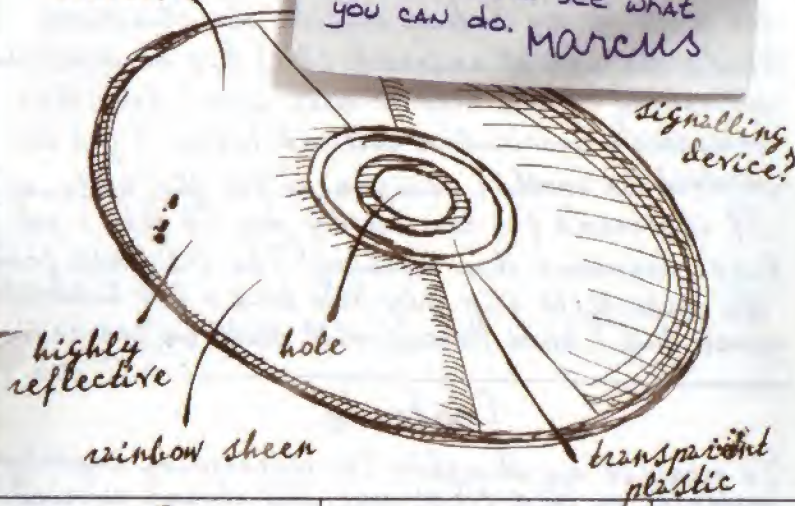 see what
you can do.
Marcus
signalling
device?
highly
reflective
hole
rainbow sheen
transparent
plastic